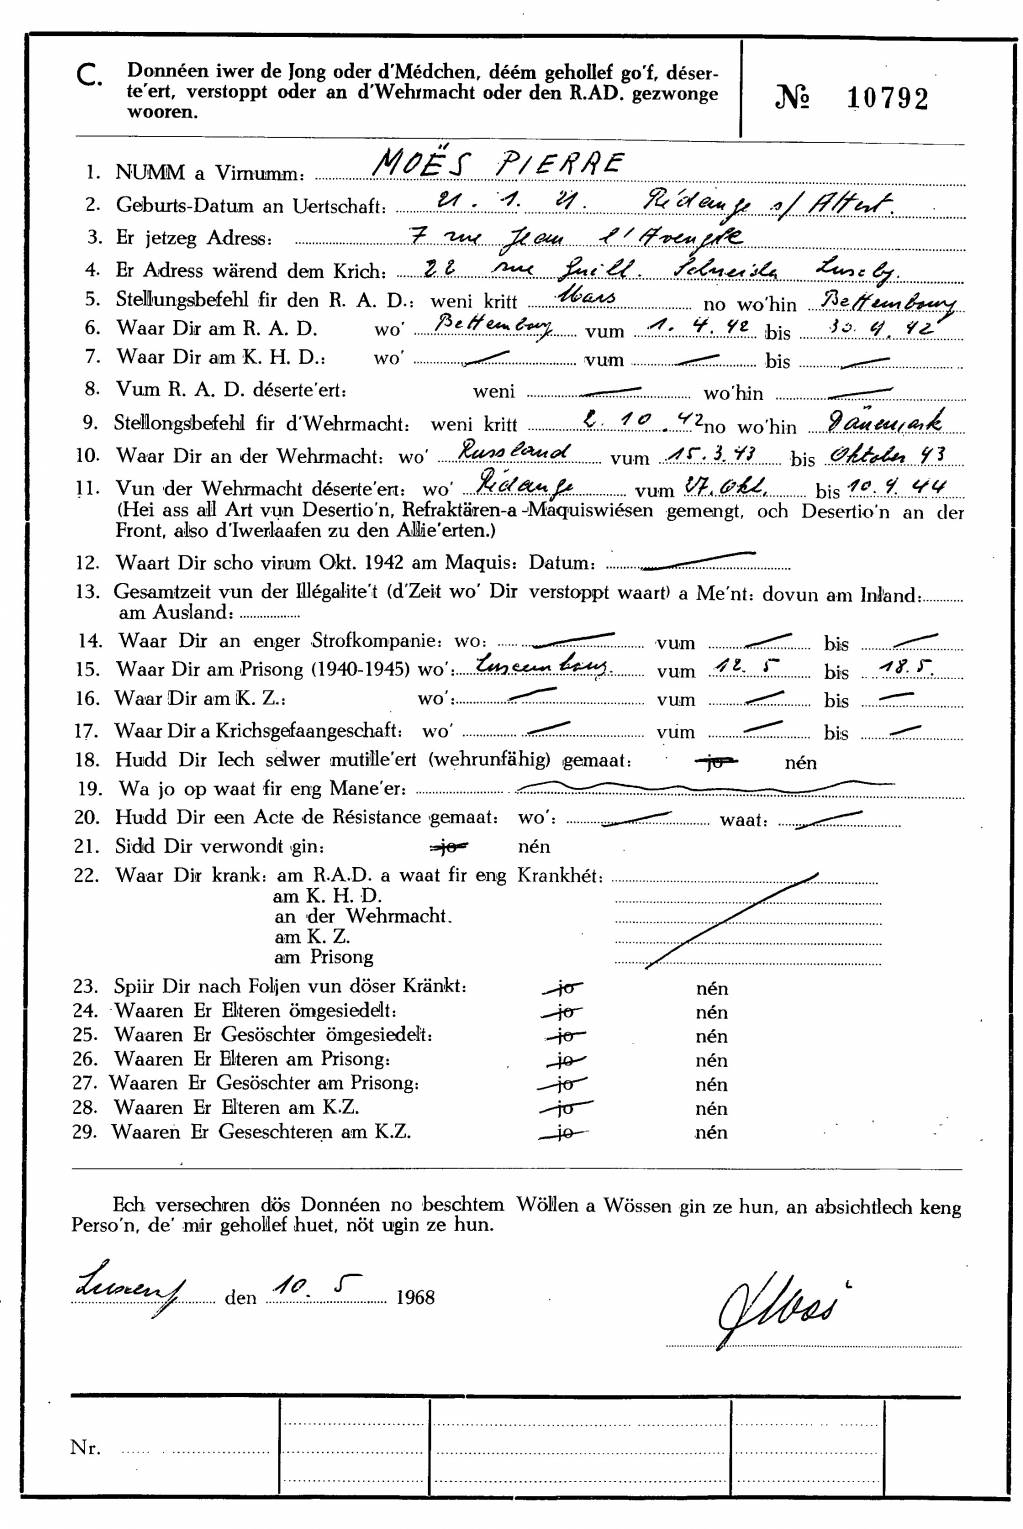 C. Donnéen iwer de Jong oder d'Médchen, déém gehollef go'f, déser-
te'ert, verstoppt oder an d'Wehrmacht oder den R.AD. gezwonge
wooren.
№ 10792
1. NUMM a Virnumm: MOËS PIERRE
2. Geburts-Datum an Uertschaft: 21. 1. 21. Rédange s/ Attert.
3. Er jetzeg Adress: 7 rue Jean l'Aveugle
4. Er Adress wärend dem Krich: 22 rue Guill. Schneider Luxbg.
5. Stellungsbefehl fir den R. A. D.: weni kritt Mars no wo'hin Bettembourg
6. Waar Dir am R. A. D. wo' Bettembourg vum 1. 4. 42 bis 30. 9. 42
7. Waar Dir am K. H. D.: wo' vum bis
8. Vum R. A. D. déserte'ert: weni wo'hin
9. Stellongsbefehl fir d'Wehrmacht: weni kritt 2. 10. 42 no wo'hin Dänemark
10. Waar Dir an der Wehrmacht: wo' Russland vum 15. 3. 43 bis Oktober 43
11. Vun der Wehrmacht déserte'ert: wo' Rédange vum 27. Okt. bis 10. 9. 44
(Hei ass all Art vun Desertio'n, Refraktären-a-Maquiswiésen gemengt, och Desertio'n an der
Front, also d'Iwerlaafen zu den Allie'erten.)
12. Waart Dir scho virum Okt. 1942 am Maquis: Datum:
13. Gesamtzeit vun der Illégalite't (d'Zeit wo' Dir verstoppt waart) a Me'nt: dovun am Inland:
am Ausland:
14. Waar Dir an enger Strofkompanie: wo: vum bis
15. Waar Dir am Prisong (1940-1945) wo': Luxembourg. vum 12. 5 bis 18. 5.
16. Waar Dir am K. Z.: wo': vum bis
17. Waar Dir a Krichsgefaangeschaft: wo' vum bis
18. Hudd Dir Iech selwer mutille'ert (wehrunfähig) gemaat: jo nén
19. Wa jo op waat fir eng Mane'er:
20. Hudd Dir een Acte de Résistance gemaat: wo': waat:
21. Sidd Dir verwondt gin: jo nén
22. Waar Dir krank: am R.A.D. a waat fir eng Krankhét:
am K. H. D.
an der Wehrmacht.
am K. Z.
am Prisong
23. Spiir Dir nach Foljen vun döser Kränkt: jo nén
24. Waaren Er Elteren ömgesiedelt: jo nén
25. Waaren Er Gesöschter ömgesiedelt: jo nén
26. Waaren Er Elteren am Prisong: jo nén
27. Waaren Er Gesöschter am Prisong: jo nén
28. Waaren Er Elteren am K.Z. jo nén
29. Waaren Er Geseschteren am K.Z. jo nén
Ech versechren dös Donnéen no beschtem Wöllen a Wössen gin ze hun, an absichtlech keng
Perso'n, de' mir gehollef huet, nöt ugin ze hun.
den 10. 5 1968
Nr.